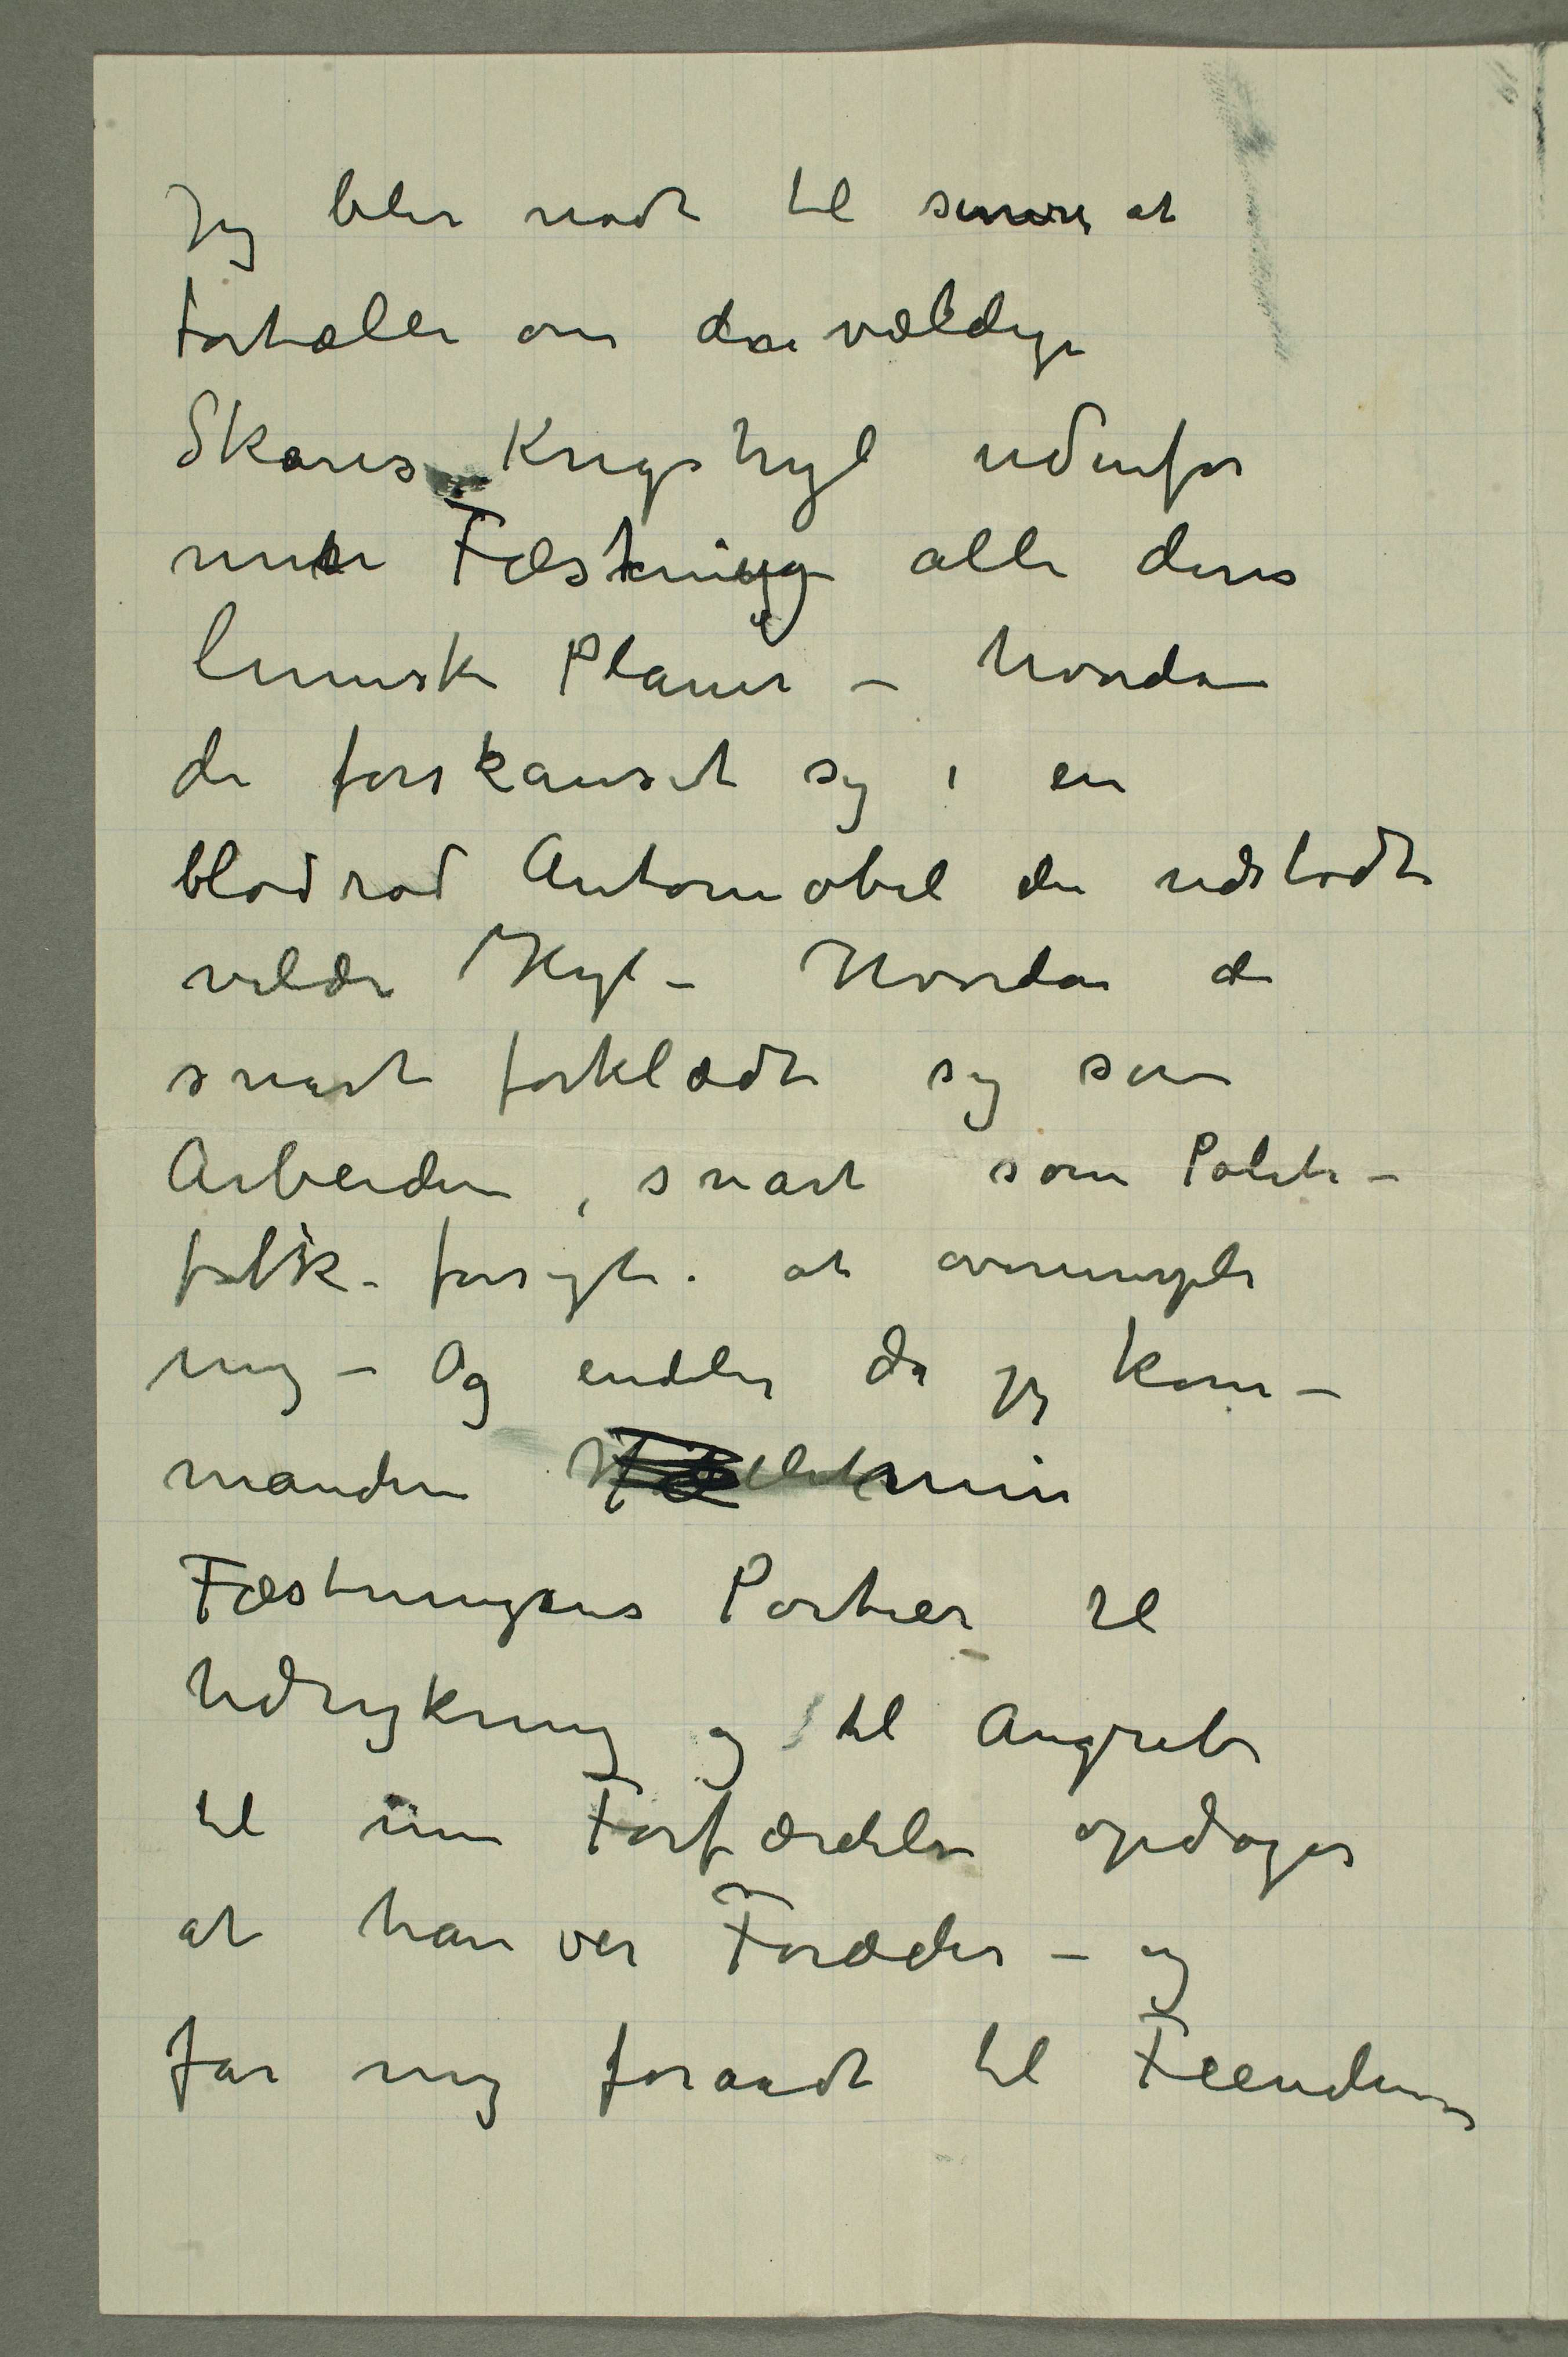 Jeg blir nødt til senere at
fortælle om den vældige
Skares Krigshyl udenfor
min Fæstning alle deres
lumske Planer – hvordan
de forskanset sig i en
blodrød Automobil der udstødte
vilde Hyl – Hvordan de
snart forklædte sig som
Arbeidere, snart som Politi-
folk – forsøgte at overrumple
mig – Og endelig da jeg kom-
manderer min
Fæstningens Portier til
Udrykning og til Angreb
til min Forfærdelse opdager
at han var Foræder – og
far mig foraadt til Fienderne